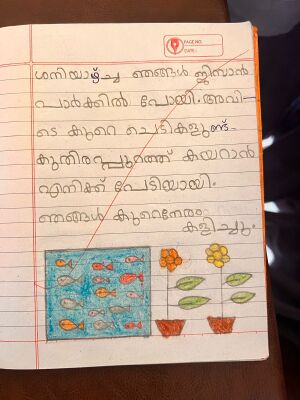 PAGE NO.
DATE:
ശനിയാഴ്ച്ച ഞങ്ങൾ ജിബാൻ
പാർക്കിൽ പോയി. അവി-
ടെ കുറെ ചെടികളുണ്ട്.
കുതിരപ്പുറത്ത് കയറാൻ
എനിക്ക് പേടിയായി.
ഞങ്ങൾ കുറെനേരം
കളിച്ചു.